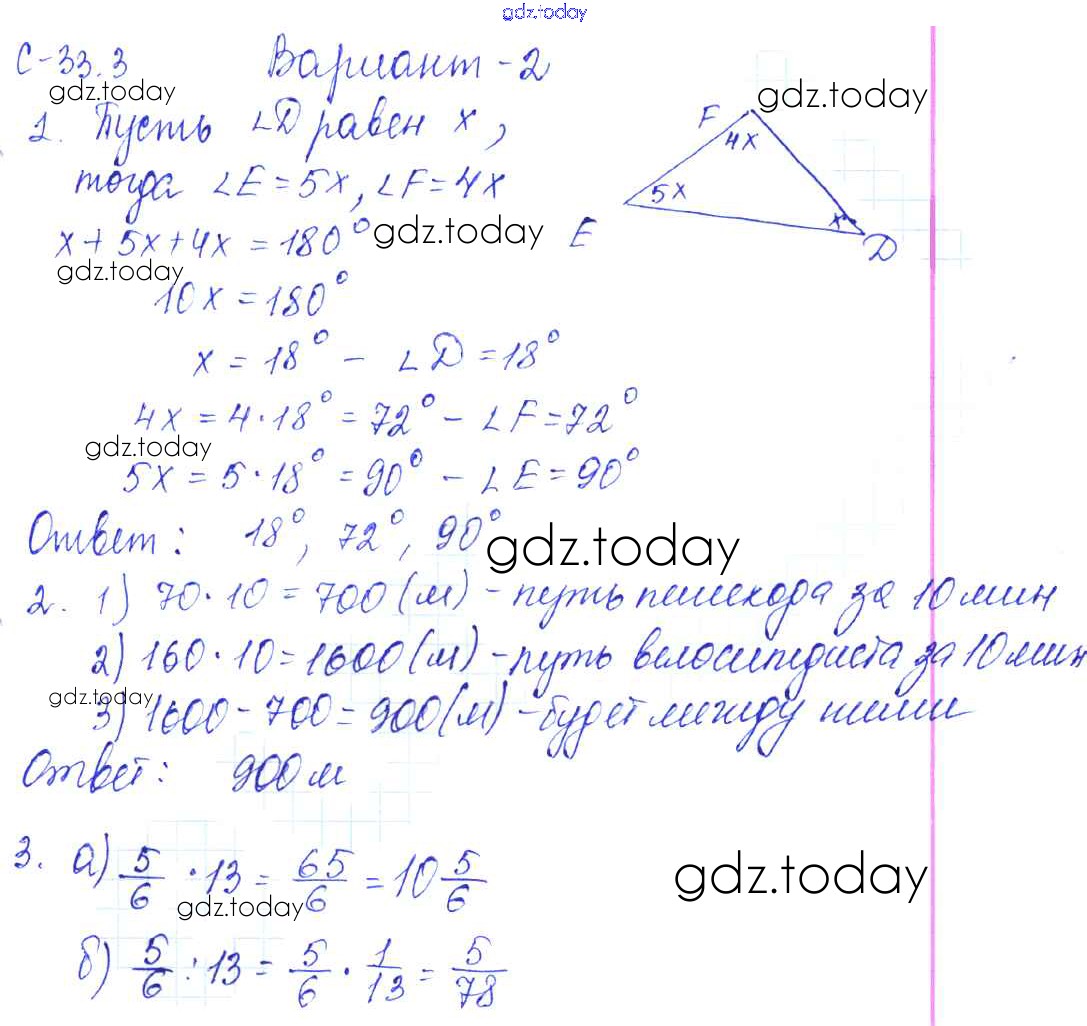 gdz.today
С-33.3 Вариант-2
gdz.today gdz.today
1. Пусть ∠D равен x,
F 4x
тогда ∠E=5x, ∠F=4x
5x
x+5x+4x=180° gdz.today E x D
gdz.today
10x=180°
x=18° - ∠D=18°
4x=4·18°=72° - ∠F=72°
gdz.today
5x=5·18°=90° - ∠E=90°
Ответ: 18°, 72°, 90°
gdz.today
2. 1) 70·10=700(м)-путь пешехода за 10 мин
2) 160·10=1600(м)-путь велосипедиста за 10 мин
gdz.today
3) 1600-700=900(м)-будет между ними
Ответ: 900 м
3. а) 5/6 · 13 = 65/6 = 10 5/6
gdz.today
gdz.today
б) 5/6 : 13 = 5/6 · 1/13 = 5/78